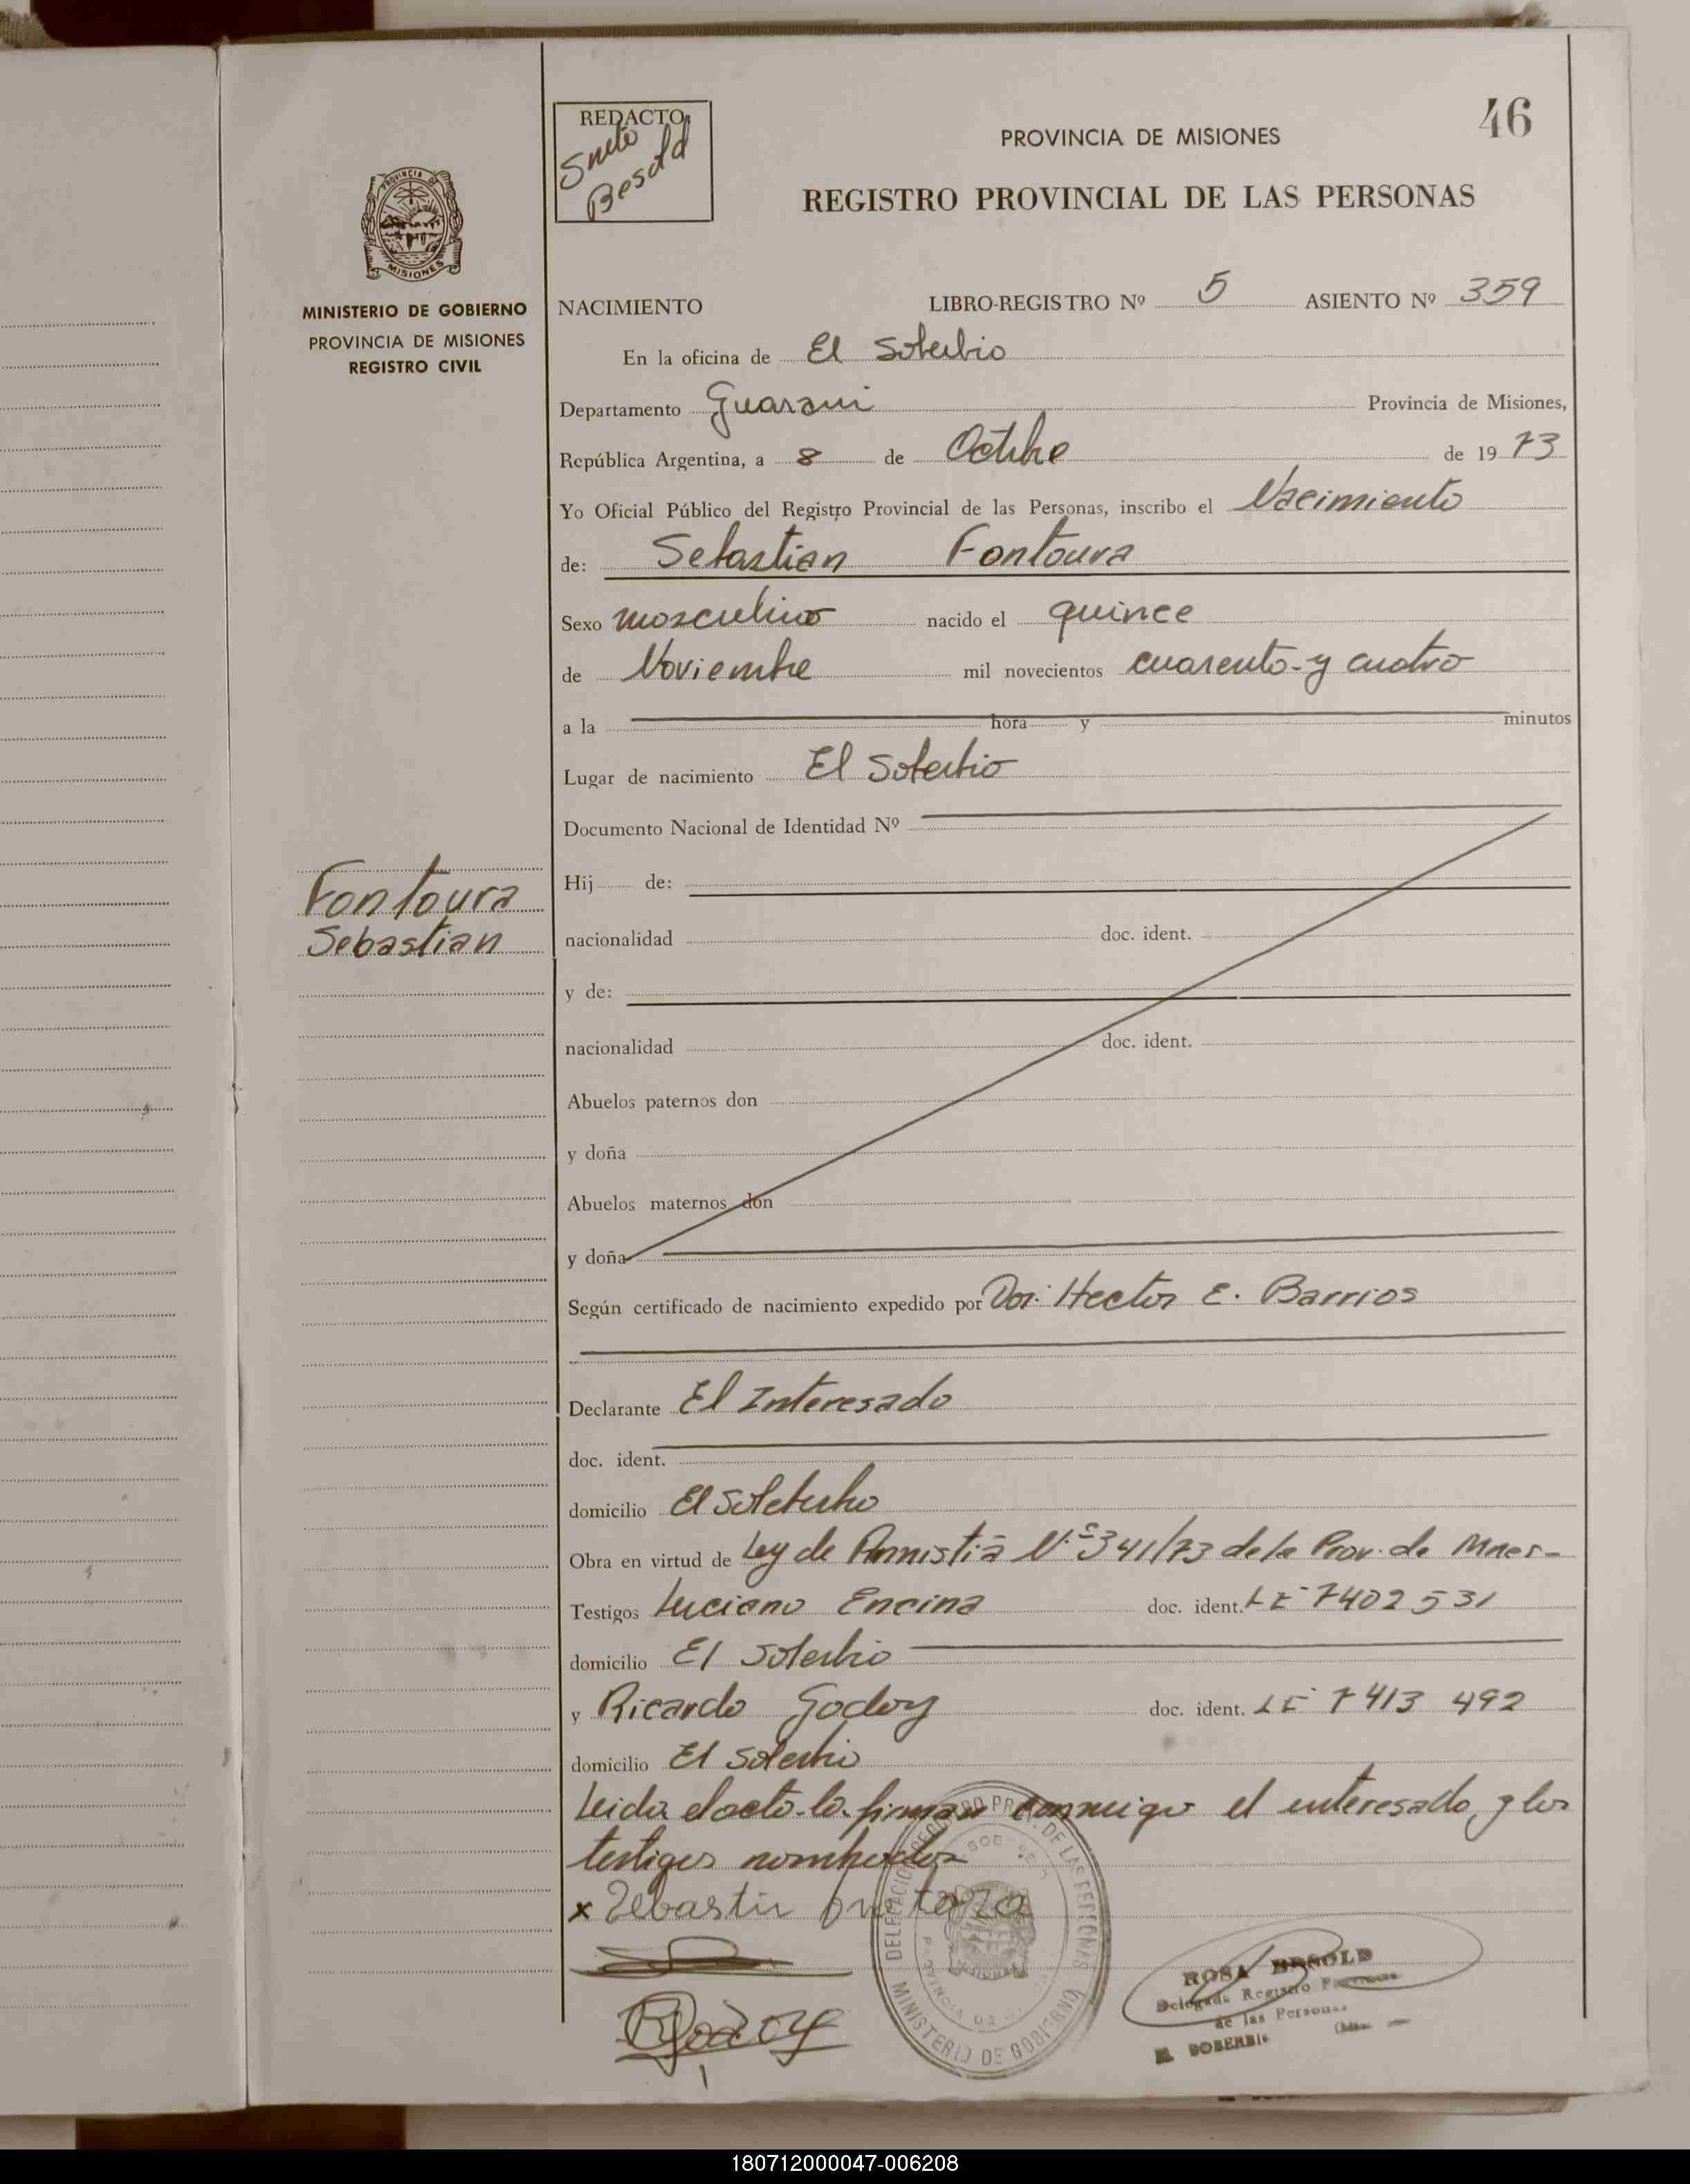 46
REDACTO
Besold
PROVINCIA DE MISIONES
REGISTRO PROVINCIAL DE LAS PERSONAS
PROVINCIA DE
MISIONES
MINISTERIO DE GOBIERNO
PROVINCIA DE MISIONES
REGISTRO CIVIL
NACIMIENTO LIBRO-REGISTRO Nº 5 ASIENTO Nº 359
En la oficina de El Soberbio
Departamento Guarani Provincia de Misiones,
República Argentina, a 8 de Octubre de 1973
Yo Oficial Público del Registro Provincial de las Personas, inscribo el Nacimiento
de: Sebastian Fontoura
Sexo masculino nacido el quince
de Noviembre mil novecientos cuarenta y cuatro
a la hora y minutos
Lugar de nacimiento El Soberbio
Documento Nacional de Identidad Nº
Fontoura
Sebastian
Hij de:
nacionalidad doc. ident.
y de:
nacionalidad doc. ident.
Abuelos paternos don
y doña
Abuelos maternos don
y doña
Según certificado de nacimiento expedido por Dor. Hector E. Barrios
Declarante El Interesado
doc. ident.
domicilio El Soberbio
Obra en virtud de Ley de Amnistia Nº 341/73 de la Prov. de Mnes-
Testigos Luciano Encina doc. ident. LE 7402531
domicilio El Soberbio
y Ricardo Godoy doc. ident. LE 7413 492
domicilio El Soberbio
Leida el acto lo firman conmigo el interesado, y los
testigos nombrados
x Sebastin
RGodoy
DELEGACION REGISTRO PROV. DE LAS PERSONAS
MINISTERIO DE GOBIERNO
ROSA BESOLD
Delegada Registro Provincial
de las Personas
EL SOBERBIO
180712000047-006208